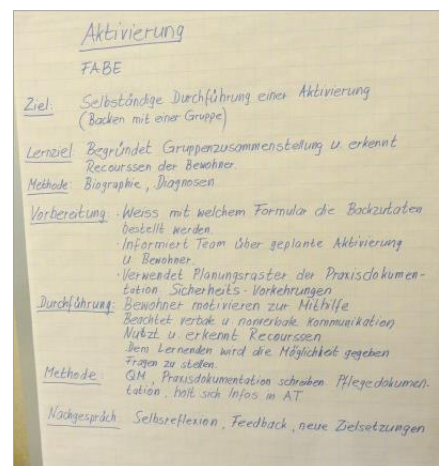 Aktivierung
FABE
Ziel: Selbständige Durchführung einer Aktivierung
(Backen mit einer Gruppe)
Lernziel: Begründet Gruppenzusammenstellung u. erkennt
Recourssen der Bewohner.
Methode: Biographie, Diagnosen
Vorbereitung: · Weiss mit welchem Formular die Backzutaten
bestellt werden.
· Informiert Team über geplante Aktivierung
u Bewohner.
· Verwendet Planungsraster der Praxisdokumen-
tation Sicherheits-Vorkehrungen
Durchführung: Bewohner motivieren zur Mithilfe
Beachtet verbale u. nonverbale Kommunikation
Nutzt u erkennt Recourssen
Dem Lernenden wird die Möglichkeit gegeben
Fragen zu stellen.
Methode: QM, Praxisdokumentation schreiben Pflegedokumen-
tation, holt sich Infos in AT
Nachgespräch: Selbsreflexion, Feedback, neue Zielsetzungen